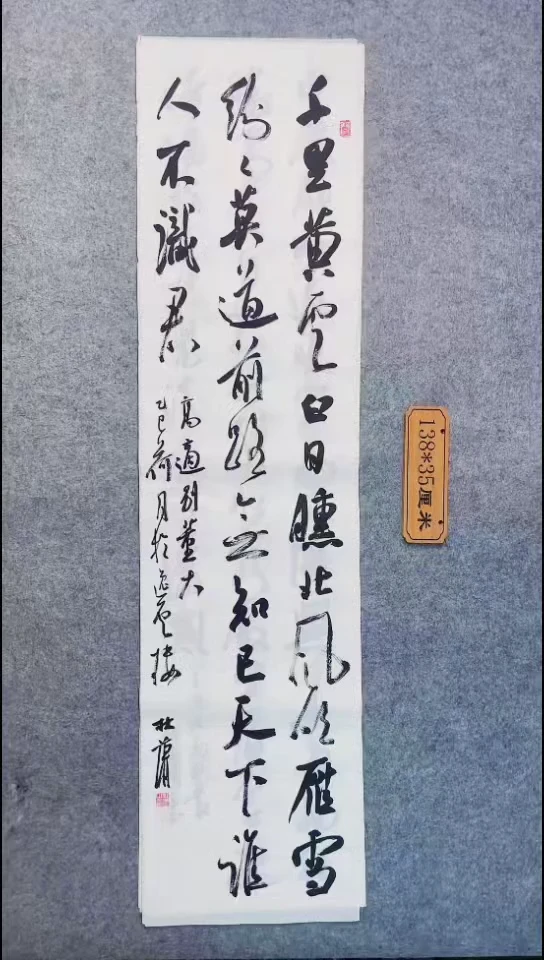 千里黄云白日曛北风吹雁雪
纷々莫道前路无知己天下谁
人不识君
高適别董大
乙巳荷月於逸云楼 杜
138*35厘米